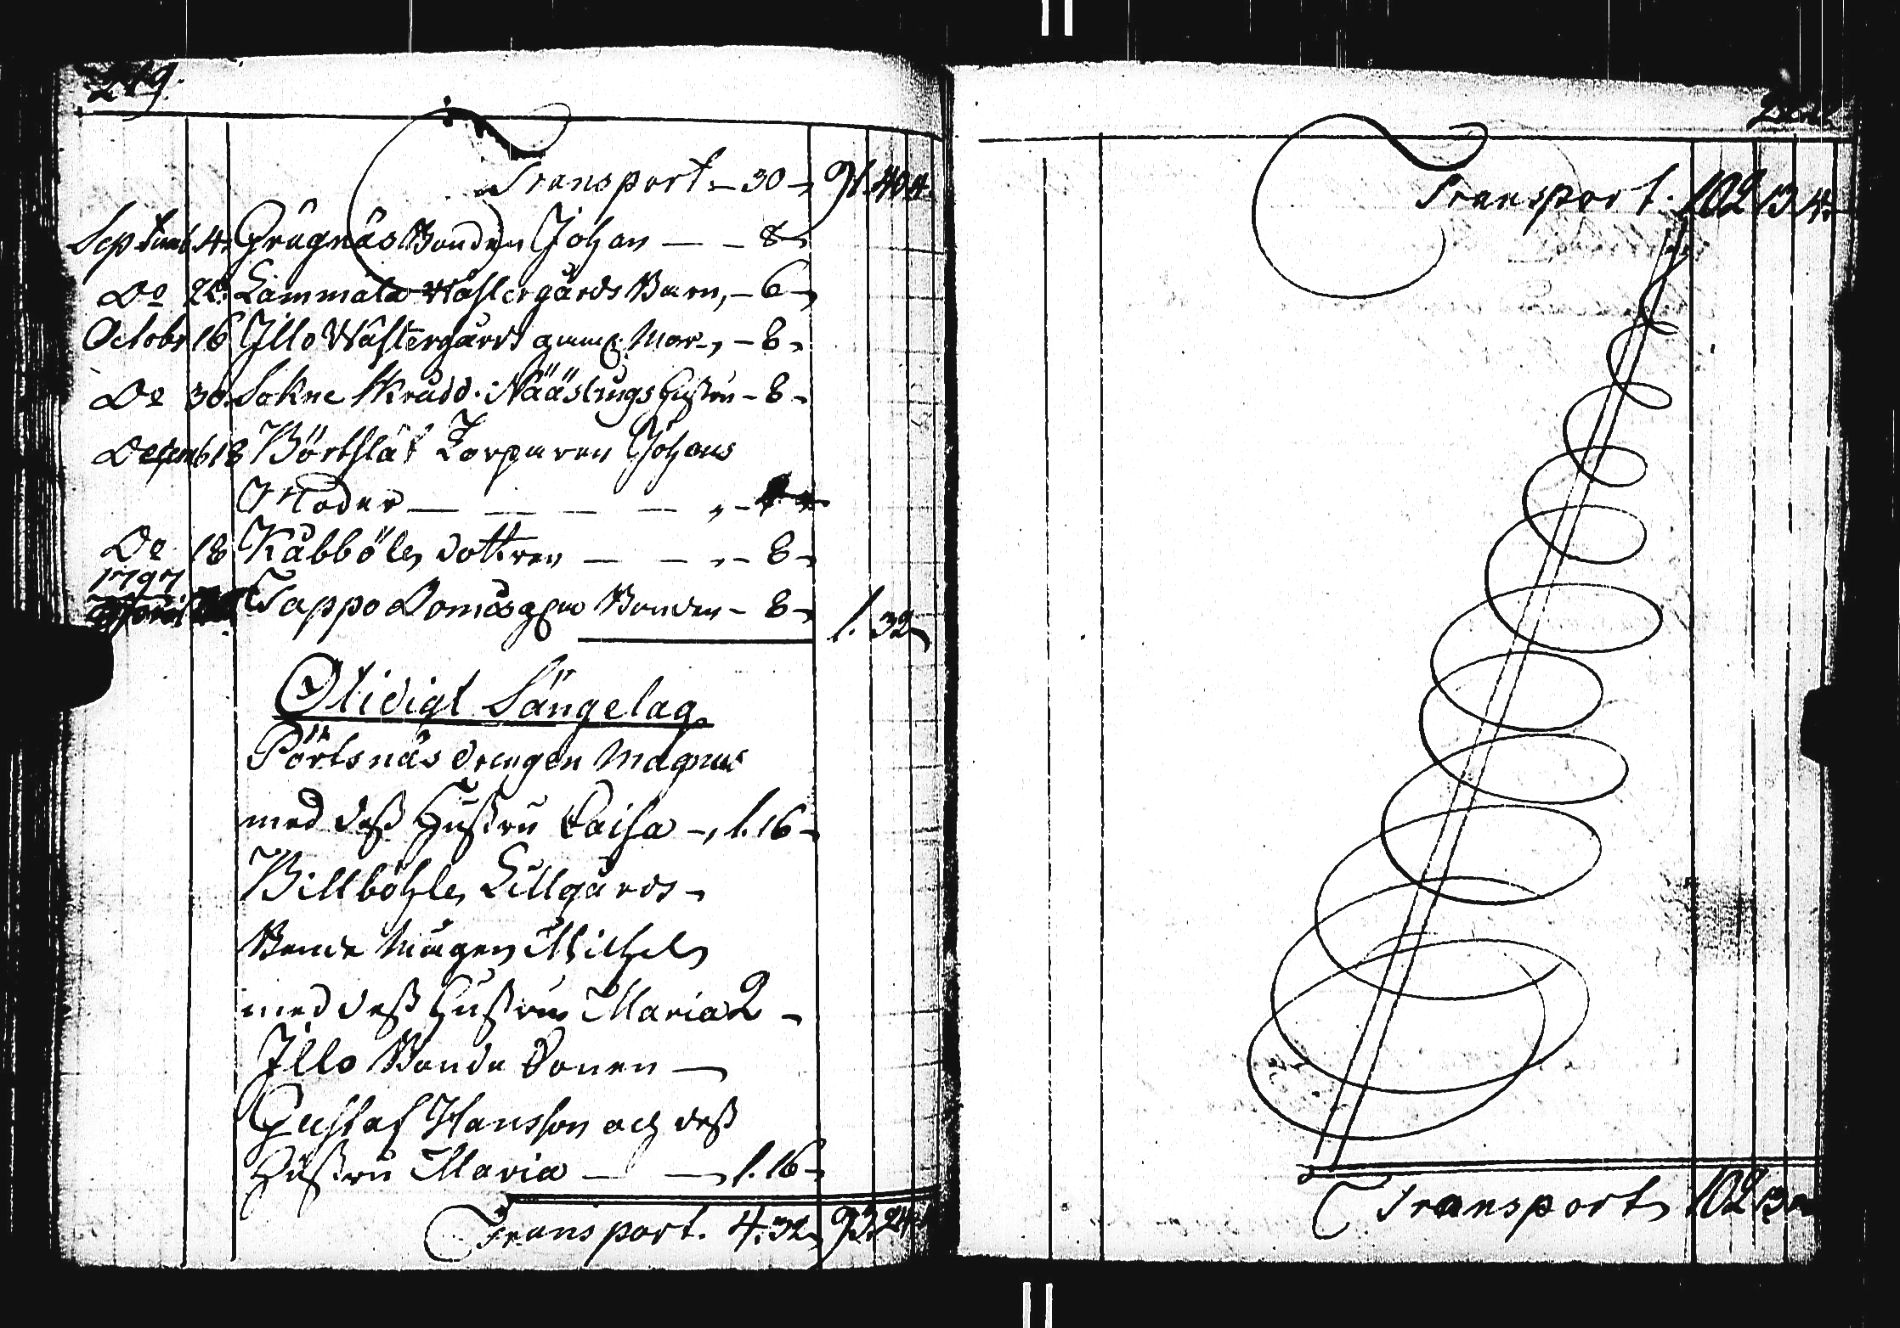 219.
Transport – 30 – 91. 40 4.
Septemb 4. Grägnäs Bonden Johan — – 8 –
Do 26. Lammala Wästergårds Barn, – 6 –
Octobr 16 Illo Wästergårds gumē Mor –, – 8 –
Do 30. Sokne Skrädd. Näslungs Hustru – 8 –
Decemb 18 Börtslät Torparen Johans
Moder — — — — „ –
Do 18 Kabböle dottren — — – 8 –
1797
Tappo Domäsgen Bonden – 8 – 1. 32
Otidigt Sängelag
Pörtsnäs drengen Magnus
med dess Hustru Caisa –, 1. 16 –
Billböhle Lillgårds –
Bonde Mågen Michels
med dess Hustru Maria 2 –
Illo Bonde Sonen —
Gustaf Hansson och dess
Hustru Maria — — 1. 16 –
Transport. 4. 32 93. 24
Transport. 102 13 4
Transport 102 13